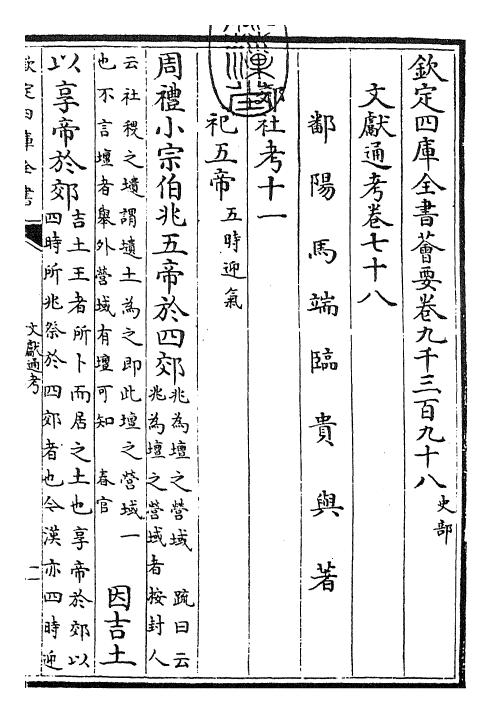 欽定四庫全書薈要卷九千三百九十八 史部
文獻通考卷七十八
鄱陽馬端臨貴與著
郊社考十一
祀五帝 五時迎氣
周禮小宗伯兆五帝於四郊 兆為壇之營域 疏曰云
兆為壇之營域者按封人
云社稷之壝謂壝土為之即此壇之營域一
也不言壇者舉外營域有壇可知 春官 因吉土
以享帝於郊 吉土王者所卜而居之土也享帝於郊以
四時所兆祭於四郊者也今漢亦四時迎
欽定四庫全書
文獻通考